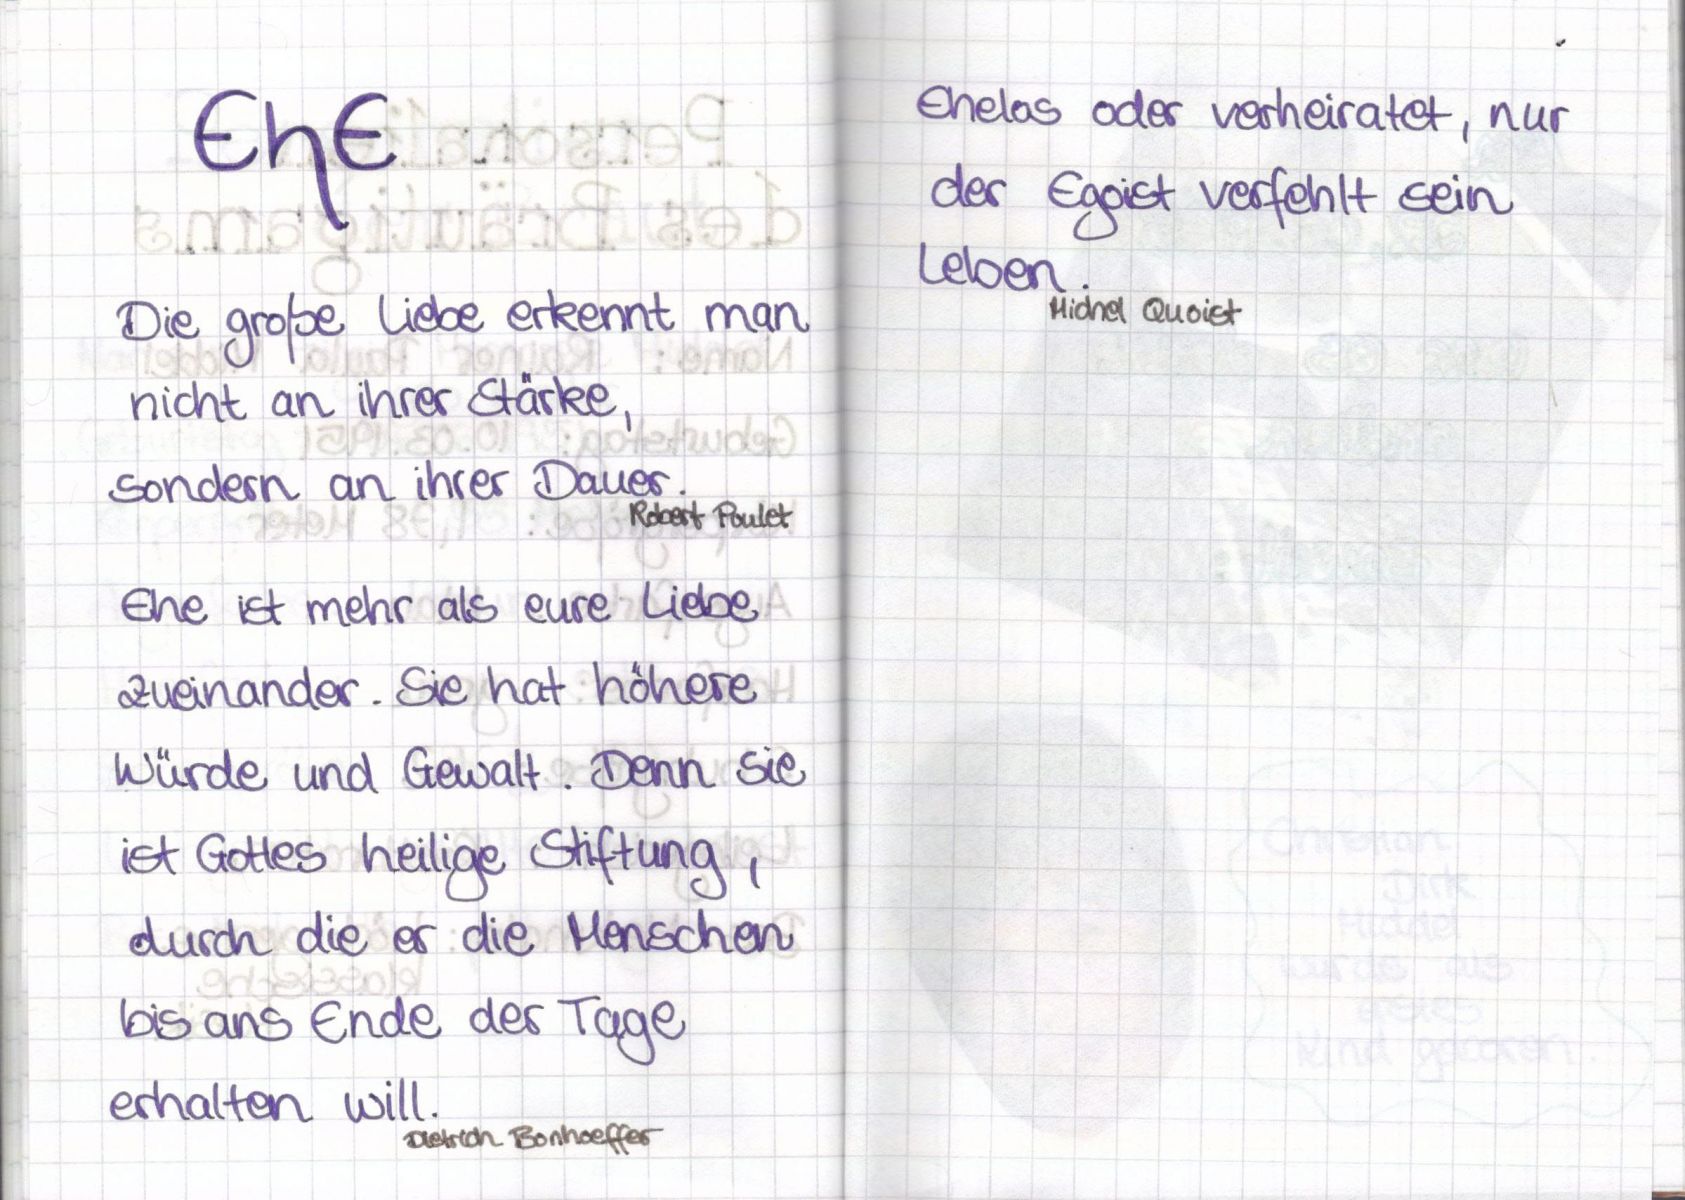 EhE
Die große Liebe erkennt man
nicht an ihrer Stärke,
sondern an ihrer Dauer.
Robert Poulet
Ehe ist mehr als eure Liebe
zueinander. Sie hat höhere
Würde und Gewalt. Denn sie
ist Gottes heilige Stiftung,
durch die er die Menschen
bis ans Ende der Tage
erhalten will.
Dietrich Bonhoeffer
Ehelos oder verheiratet, nur
der Egoist verfehlt sein
Leben.
Michel Quoist
Christian
Dirk
Middel
wurde als
erstes
Kind geboren.